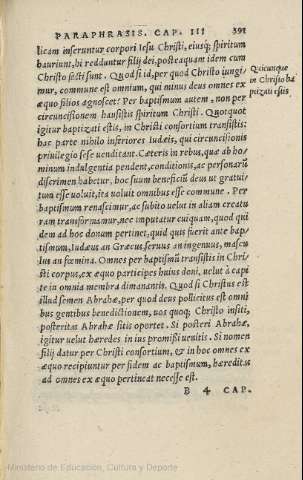 PARAPHRASIS. CAP. III 391
licam inseruntur corpori Iesu Christi, eiusq; spiritum
hauriunt, bi redduntur filij dei, posteaquam idem cum
Christo facti sunt. Quod si id, per quod Christo iungi-
mur, commune est omnium, qui minus deus omnes ex
æquo filios agnoscet? Per baptismum autem, non per
circuncisionem hausistis spiritum Christi. Quotquot
igitur baptizati estis, in Christi consortium transistis:
hac parte nihilo inferiores Iudæis, qui circuncisionis
priuilegio sese uenditant. Cæteris in rebus, quæ ab ho-
minum indulgentia pendent, conditionis, ac personarū
discrimen habetur. hoc suum beneficiū deus ut gratui-
tum esse uoluit, ita uoluit omnibus esse commune. Per
baptismum renascimur, ac subito uelut in aliam creatu
ram transformamur, nec imputatur cuiquam, quod qui
dem ad hoc donum pertinet, quid quis fuerit ante bap-
tismum, Iudæus an Græcus, seruus an ingenuus, mascu
lus an fœmina. Omnes per baptismū transistis in Chri-
sti corpus, ex æquo participes huius doni, uelut à capi
te in omnia membra dimanantis. Quod si Christus est
illud semen Abrahæ, per quod deus pollicitus est omni
bus gentibus benedictionem, uos quoq; Christo insiti,
posteritas Abrahæ sitis oportet. Si posteri Abrahæ,
igitur uelut hæredes in ius promißi uenitis. Si nomen
filij datur per Christi consortium, & in hoc omnes ex
æquo recipiuntur per fidem ac baptismum, hæredita
ad omnes ex æquo pertineat necesse est.
B 4 CAP.
Quicunque
in Christo ba
ptizati estis
Ministerio de Educación, Cultura y Deporte